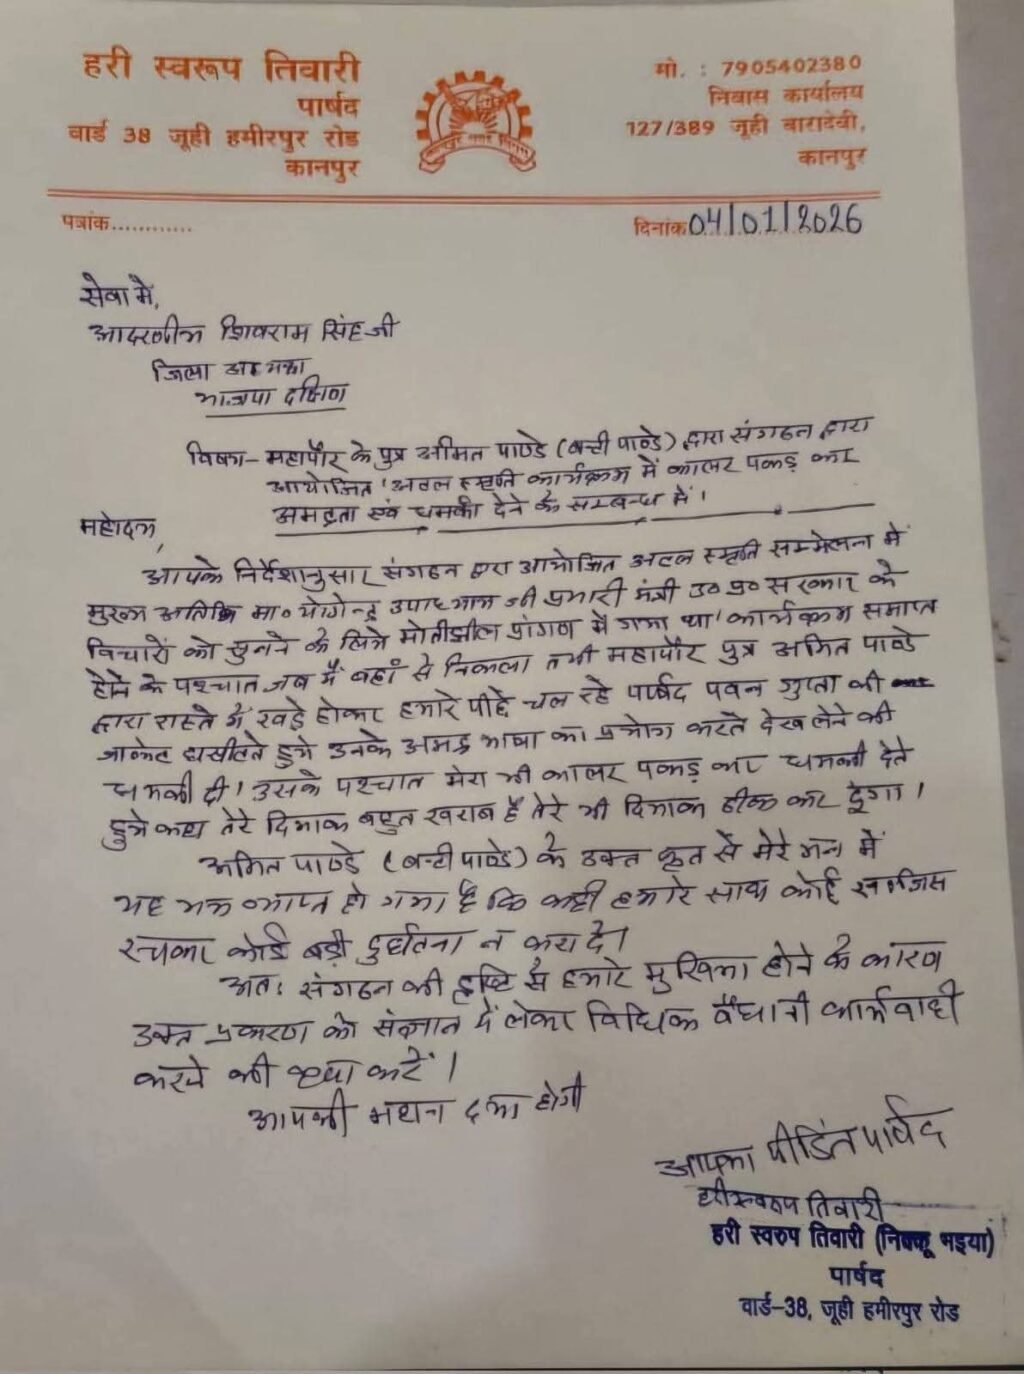 हरी स्वरूप तिवारी
पार्षद
वार्ड 38 जूही हमीरपुर रोड
कानपुर
कानपुर नगर निगम
मो. : 7905402380
निवास कार्यालय
127/389 जूही बारादेवी,
कानपुर
पत्रांक............
दिनांक 04/01/2026
सेवा मे,
आदरणीय शिवराम सिंह जी
जिला अध्यक्ष
भाजपा दक्षिण
विषय- महापौर के पुत्र अमित पाण्डे (बन्टी पाण्डे) द्वारा संगठन द्वारा
आयोजित 'अटल स्मृति कार्यक्रम में कालर पकड़ कर
अभद्रता एवं धमकी देने के सम्बन्ध में।
महोदय,
आपके निर्देशानुसार संगठन द्वारा आयोजित अटल स्मृति सम्मेलन में
मुख्य अतिथि मा० योगेन्द्र उपाध्याय जी प्रभारी मंत्री उ० प्र० सरकार के
विचारों को सुनने के लिये मोतीझील प्रांगण में गया था' कार्यक्रम समाप्त
होने के पश्चात जब मैं वहाँ से निकला तभी महापौर पुत्र अमित पाण्डे
द्वारा रास्ते में खड़े होकर हमारे पीछे चल रहे पार्षद पवन गुप्ता की
जाकेट घसीटते हुये उनके अभद्र भाषा का प्रयोग करते देख लेने की
धमकी दी। उसके पश्चात मेरा भी कालर पकड़ कर धमकी देते
हुये कहा तेरे दिमाक बहुत खराब है तेरे भी दिमाक ठीक कर दूंगा।
अमित पाण्डे (बन्टी पाण्डे) के उक्त कृत से मेरे मन में
यह भय व्याप्त हो गया है कि कहीं हमारे साथ कोई साजिस
रचकर कोई बड़ी दुर्घटना न करा दे।
अतः संगठन की दृष्टि से हमारे मुखिया होने के कारण
उक्त प्रकरण को संज्ञान में लेकर विधिक वैधानी कार्यवाही
करने की कृपा करें।
आपकी महान दया होगी
आपका पीडित पार्षद
हरी स्वरूप तिवारी
हरी स्वरुप तिवारी (निक्कू भइया)
पार्षद
वार्ड-38, जूही हमीरपुर रोड